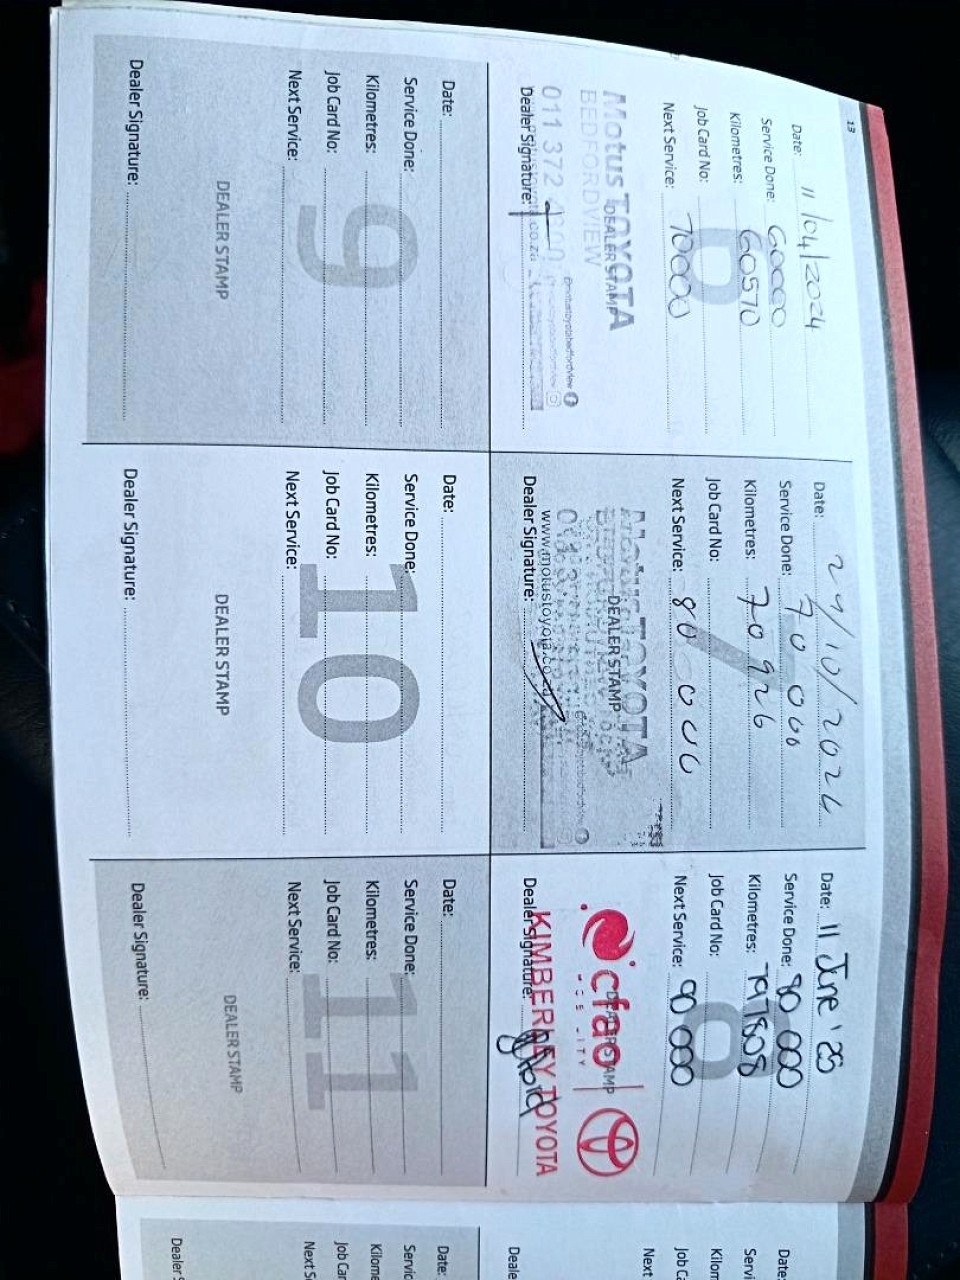 13
Date: 11/04/2024
Service Done: 60000
Kilometres: 60570
Job Card No:
Next Service: 70000
6
Motus TOYOTA
DEALER STAMP
BEDFORDVIEW
011 372
Dealer Signature:
Date: 29/10/2024
Service Done: 70 000
Kilometres: 70 926
Job Card No:
Next Service: 80 000
7
Motus TOYOTA
DEALER STAMP
www.motustoyota.co.za
Dealer Signature:
Date: 11 June '25
Service Done: 80 000
Kilometres:
Job Card No:
Next Service: 90 000
8
cfao
MOBILITY
DEALER STAMP
KIMBERLEY TOYOTA
Dealer Signature:
Date:
Service Done:
Kilometres:
Job Card No:
Next Service:
9
DEALER STAMP
Dealer Signature:
Date:
Service Done:
Kilometres:
Job Card No:
Next Service:
10
DEALER STAMP
Dealer Signature:
Date:
Service Done:
Kilometres:
Job Card No:
Next Service:
11
DEALER STAMP
Dealer Signature:
Date:
Servic
Kilom
Job Ca
Next
Deale
Date:
Servic
Kilome
Job Car
Next S
Dealer S